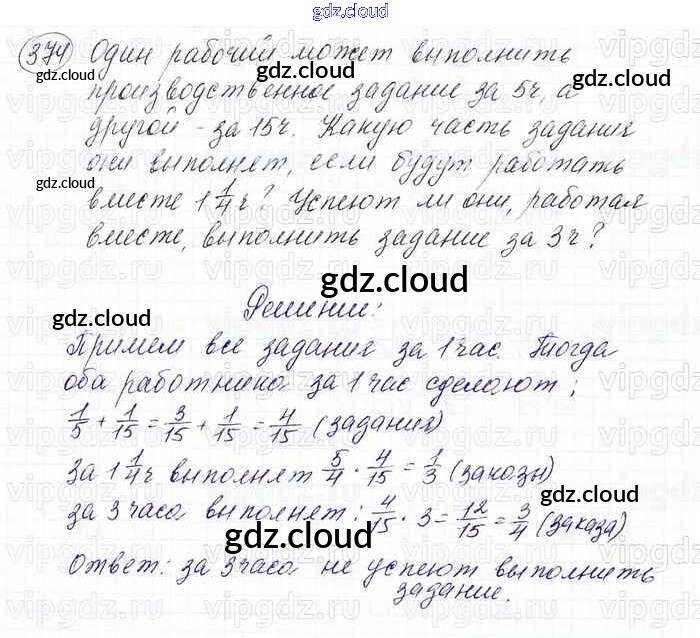 gdz.cloud
374 Один рабочий может выполнить
gdz.cloud gdz.cloud
производственное задание за 5ч, а
другой - за 15ч. Какую часть задания
gdz.cloud gdz.cloud
они выполнят, если будут работать
gdz.cloud gdz.cloud
вместе 1 1/4 ч? Успеют ли они, работая
вместе, выполнить задание за 3ч?
gdz.cloud
Решение:
gdz.cloud
Примем все задания за 1 час. Тогда
gdz.cloud
оба работника за 1 час сделают:
1/5 + 1/15 = 3/15 + 1/15 = 4/15 (задания)
gdz.cloud
За 1 1/4 ч выполнят 5/4 · 4/15 = 1/3 (заказы)
gdz.cloud
за 3 часа выполнят: 4/15 · 3 = 12/15 = 3/4 (заказа)
gdz.cloud
Ответ: за 3 часа не успеют выполнить
задание.